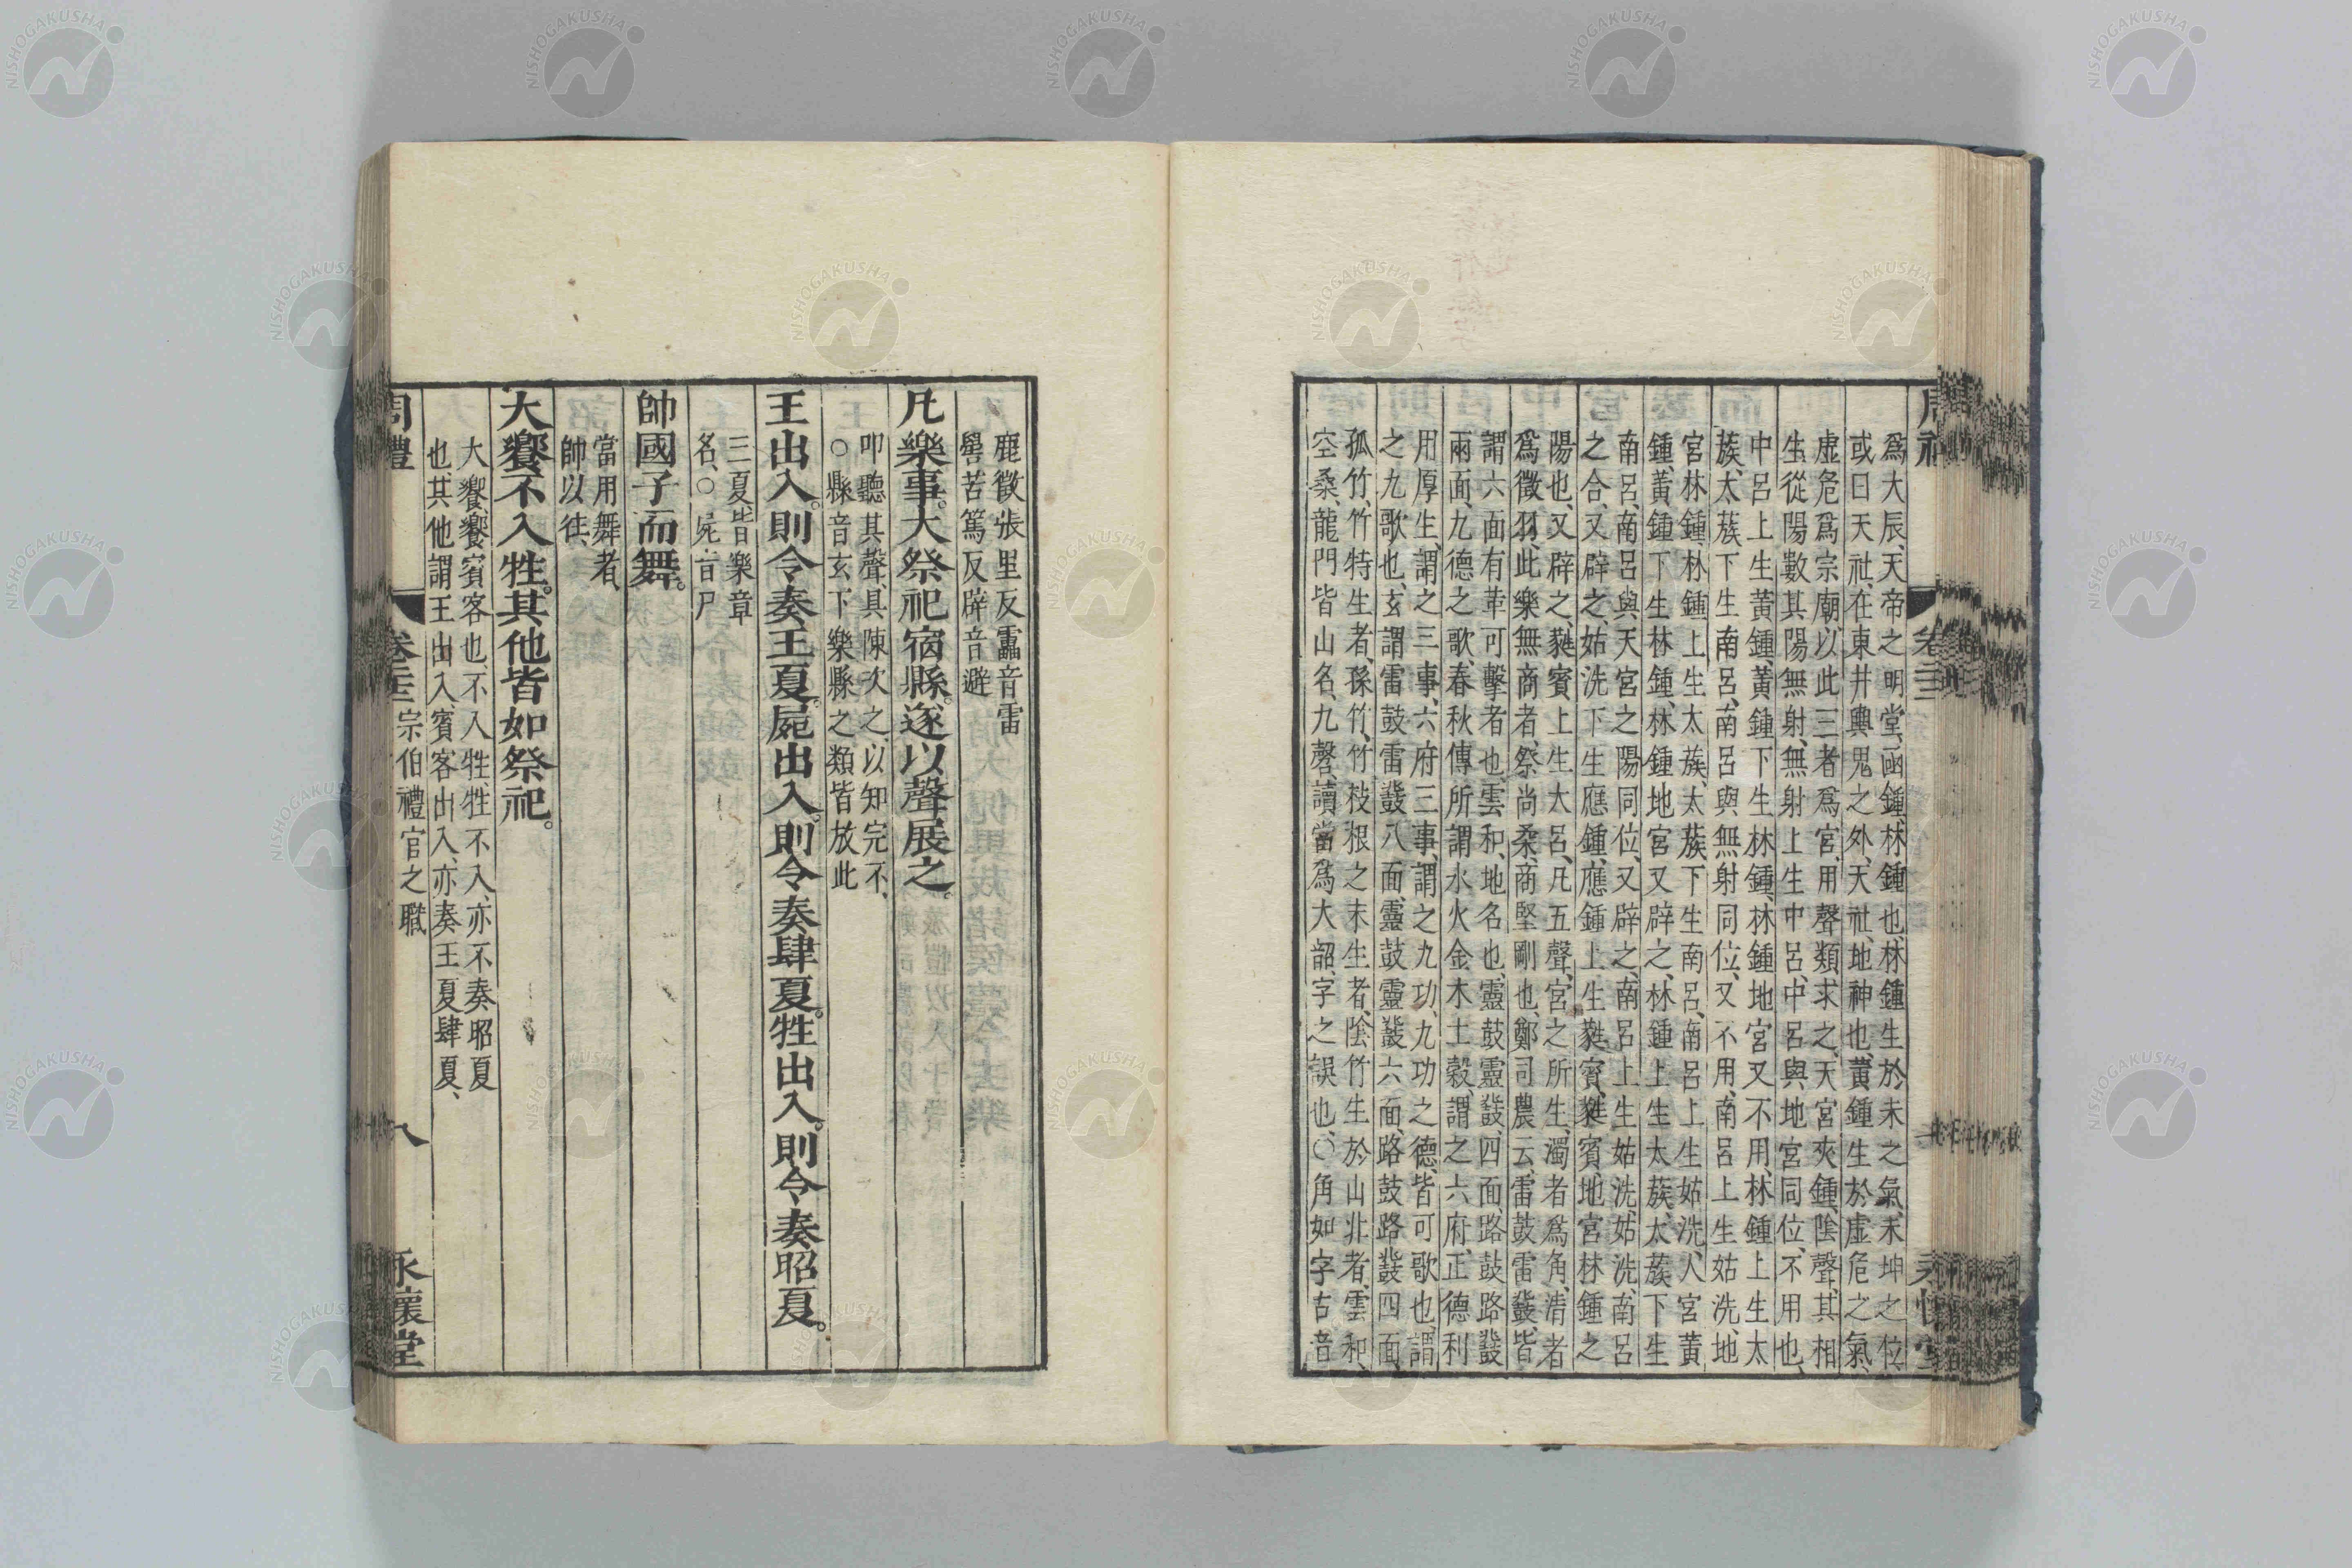 爲大辰、天帝之明堂、函鍾、林鍾也、林鍾生於未之氣、未坤之位、
或曰天社、在東井輿鬼之外、天社、地神也、黃鍾生於虛危之氣、
虛危爲宗廟、以此三者爲宮、用聲類求之、天宮夾鍾、陰聲、其相
生從陽數、其陽無射、無射上生中呂、中呂與地宮同位、不用也、
中呂上生黃鍾、黃鍾下生林鍾、林鍾地宮、又不用、林鍾上生太
蔟、太蔟下生南呂、南呂與無射同位、又不用、南呂上生姑洗、地
宮林鍾、林鍾上生太蔟、太蔟下生南呂、南呂上生姑洗、人宮黃
鍾、黃鍾下生林鍾、林鍾地宮又辟之、林鍾上生太蔟、太蔟下生
南呂、南呂與天宮之陽同位、又辟之、南呂上生姑洗、姑洗、南呂
之合、又辟之、姑洗下生應鍾、應鍾上生蕤賓、蕤賓地宮林鍾之
陽也、又辟之、蕤賓上生大呂、凡五聲、宮之所生、濁者爲角、清者
爲徵羽、此樂無商者、祭尚柔、商堅剛也、鄭司農云、雷鼓雷鼗、皆
謂六面有革可擊者也、雲和、地名也、靈鼓靈鼗、四面、路鼓路鼗
兩面、九德之歌、春秋傳所謂水火金木土穀、謂之六府、正德利
用厚生、謂之三事、六府三事、謂之九功、九功之德、皆可歌也、謂
之九歌也、玄謂雷鼓雷鼗八面、靈鼓靈鼗六面、路鼓路鼗四面、
孤竹、竹特生者、孫竹、竹枝根之末生者、陰竹生於山北者、雲和、
空桑、龍門皆山名、九磬、讀當爲大韶、字之誤也、〇角如字古音
鹿徵張里反靁音雷
磬苦篤反辟音避
凡樂事。大祭祀宿縣。遂以聲展之。
叩聽其聲、具陳次之、以知完不、
〇縣音玄下樂縣之類皆放此
王出入。則令奏王夏。屍出入。則令奏肆夏。牲出入。則令奏昭夏。
三夏、皆樂章
名、〇屍音尸
帥國子而舞。
當用舞者、
帥以往、
大饗不入牲。其他皆如祭祀。
大饗、饗賓客也、不入牲、牲不入、亦不奏昭夏
也、其他謂王出入、賓客出入、亦奏王夏肆夏、
周禮 卷二十二 宗伯禮官之職 八 永懷堂